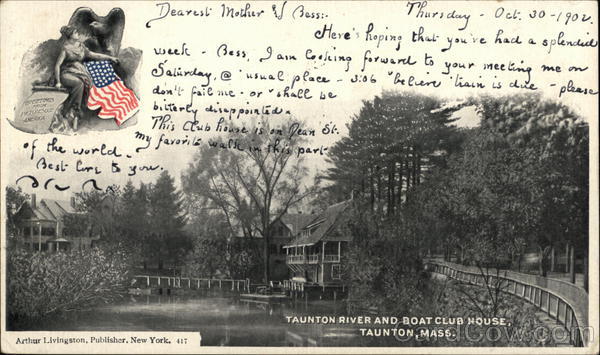 Dearest Mother & Bess:-
Thursday - Oct. 30-1902.
Here's hoping that you've had a splendid
week - Bess, I am looking forward to your meeting me on
Saturday, @ usual place - 3:06 I believe train is due - please
don't fail me - or I shall be
bitterly disappointed.
This Club house is on Dean St.
my favorite walk in this part
of the world.
Best love to you.
GREETINGS
FROM
PICTURESQUE
AMERICA
TAUNTON RIVER AND BOAT CLUB HOUSE,
TAUNTON, MASS.
Arthur Livingston, Publisher, New York. 417
CardCow.com